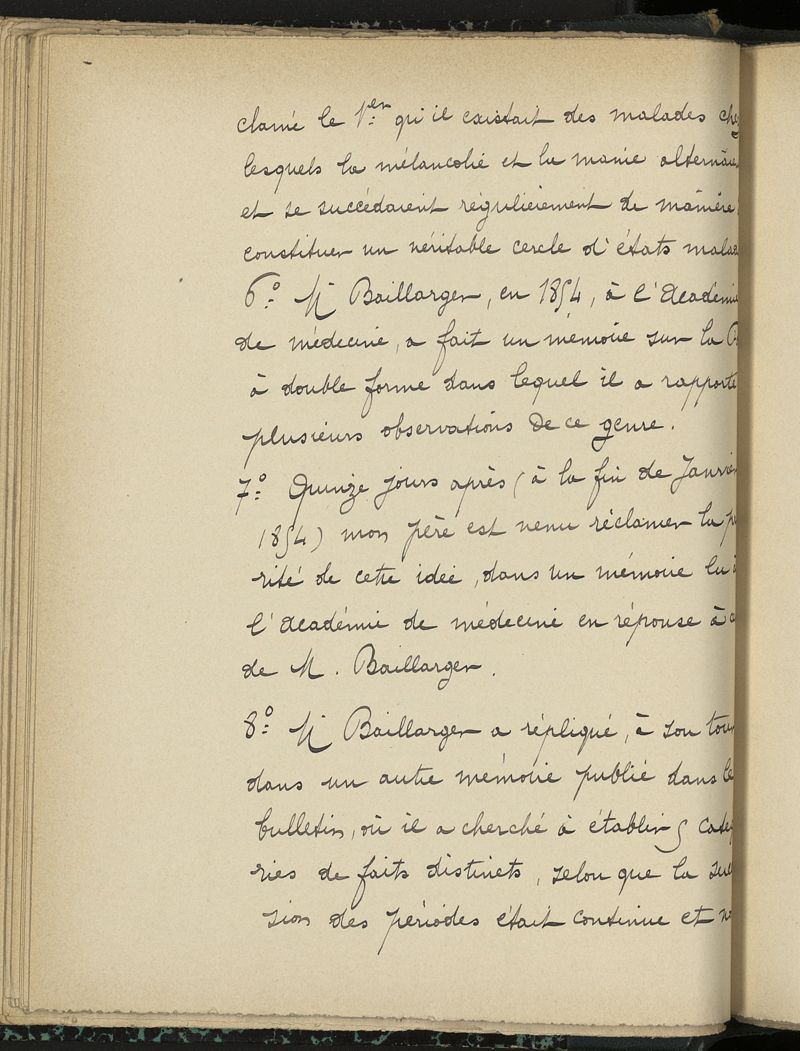 clamé le 1er qu'il existait des malades chez
lesquels la mélancolie et la manie alternaie
et se succédaient régulièrement de manière
constituer un véritable cercle d'états malad
6o. Mr Baillarger, en 1854, à l'Académie
de médecine, a fait un mémoire sur la
à double forme dans lequel il a rapporté
plusieurs observations de ce genre.
7o. Quinze jours après (à la fin de Janvier
1854) mon père est venu réclamer la p
rité de cette idée, dans un mémoire lu à
l'Académie de médecine en réponse à c
de M. Baillarger.
8o. Mr Baillarger a répliqué, à son tour
dans un autre mémoire publié dans le
bulletin, où il a cherché à établir 5 catég
ries de faits distincts, selon que la succ
sion des périodes était continue et n